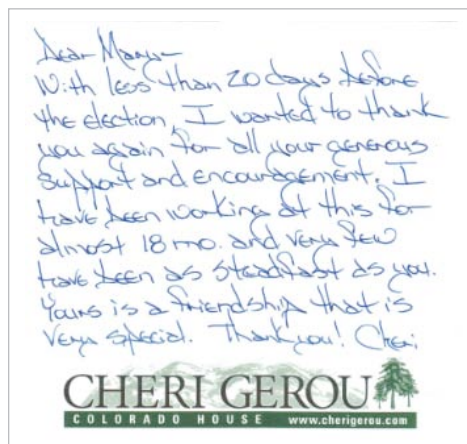 Dear Mary-
With less than 20 days before
the election, I wanted to thank
you again for all your generous
support and encouragement. I
have been working at this for
almost 18 mo. and very few
have been as steadfast as you.
Yours is a friendship that is
very special. Thank you! Cheri
CHERI GEROU
COLORADO HOUSE www.cherigerou.com